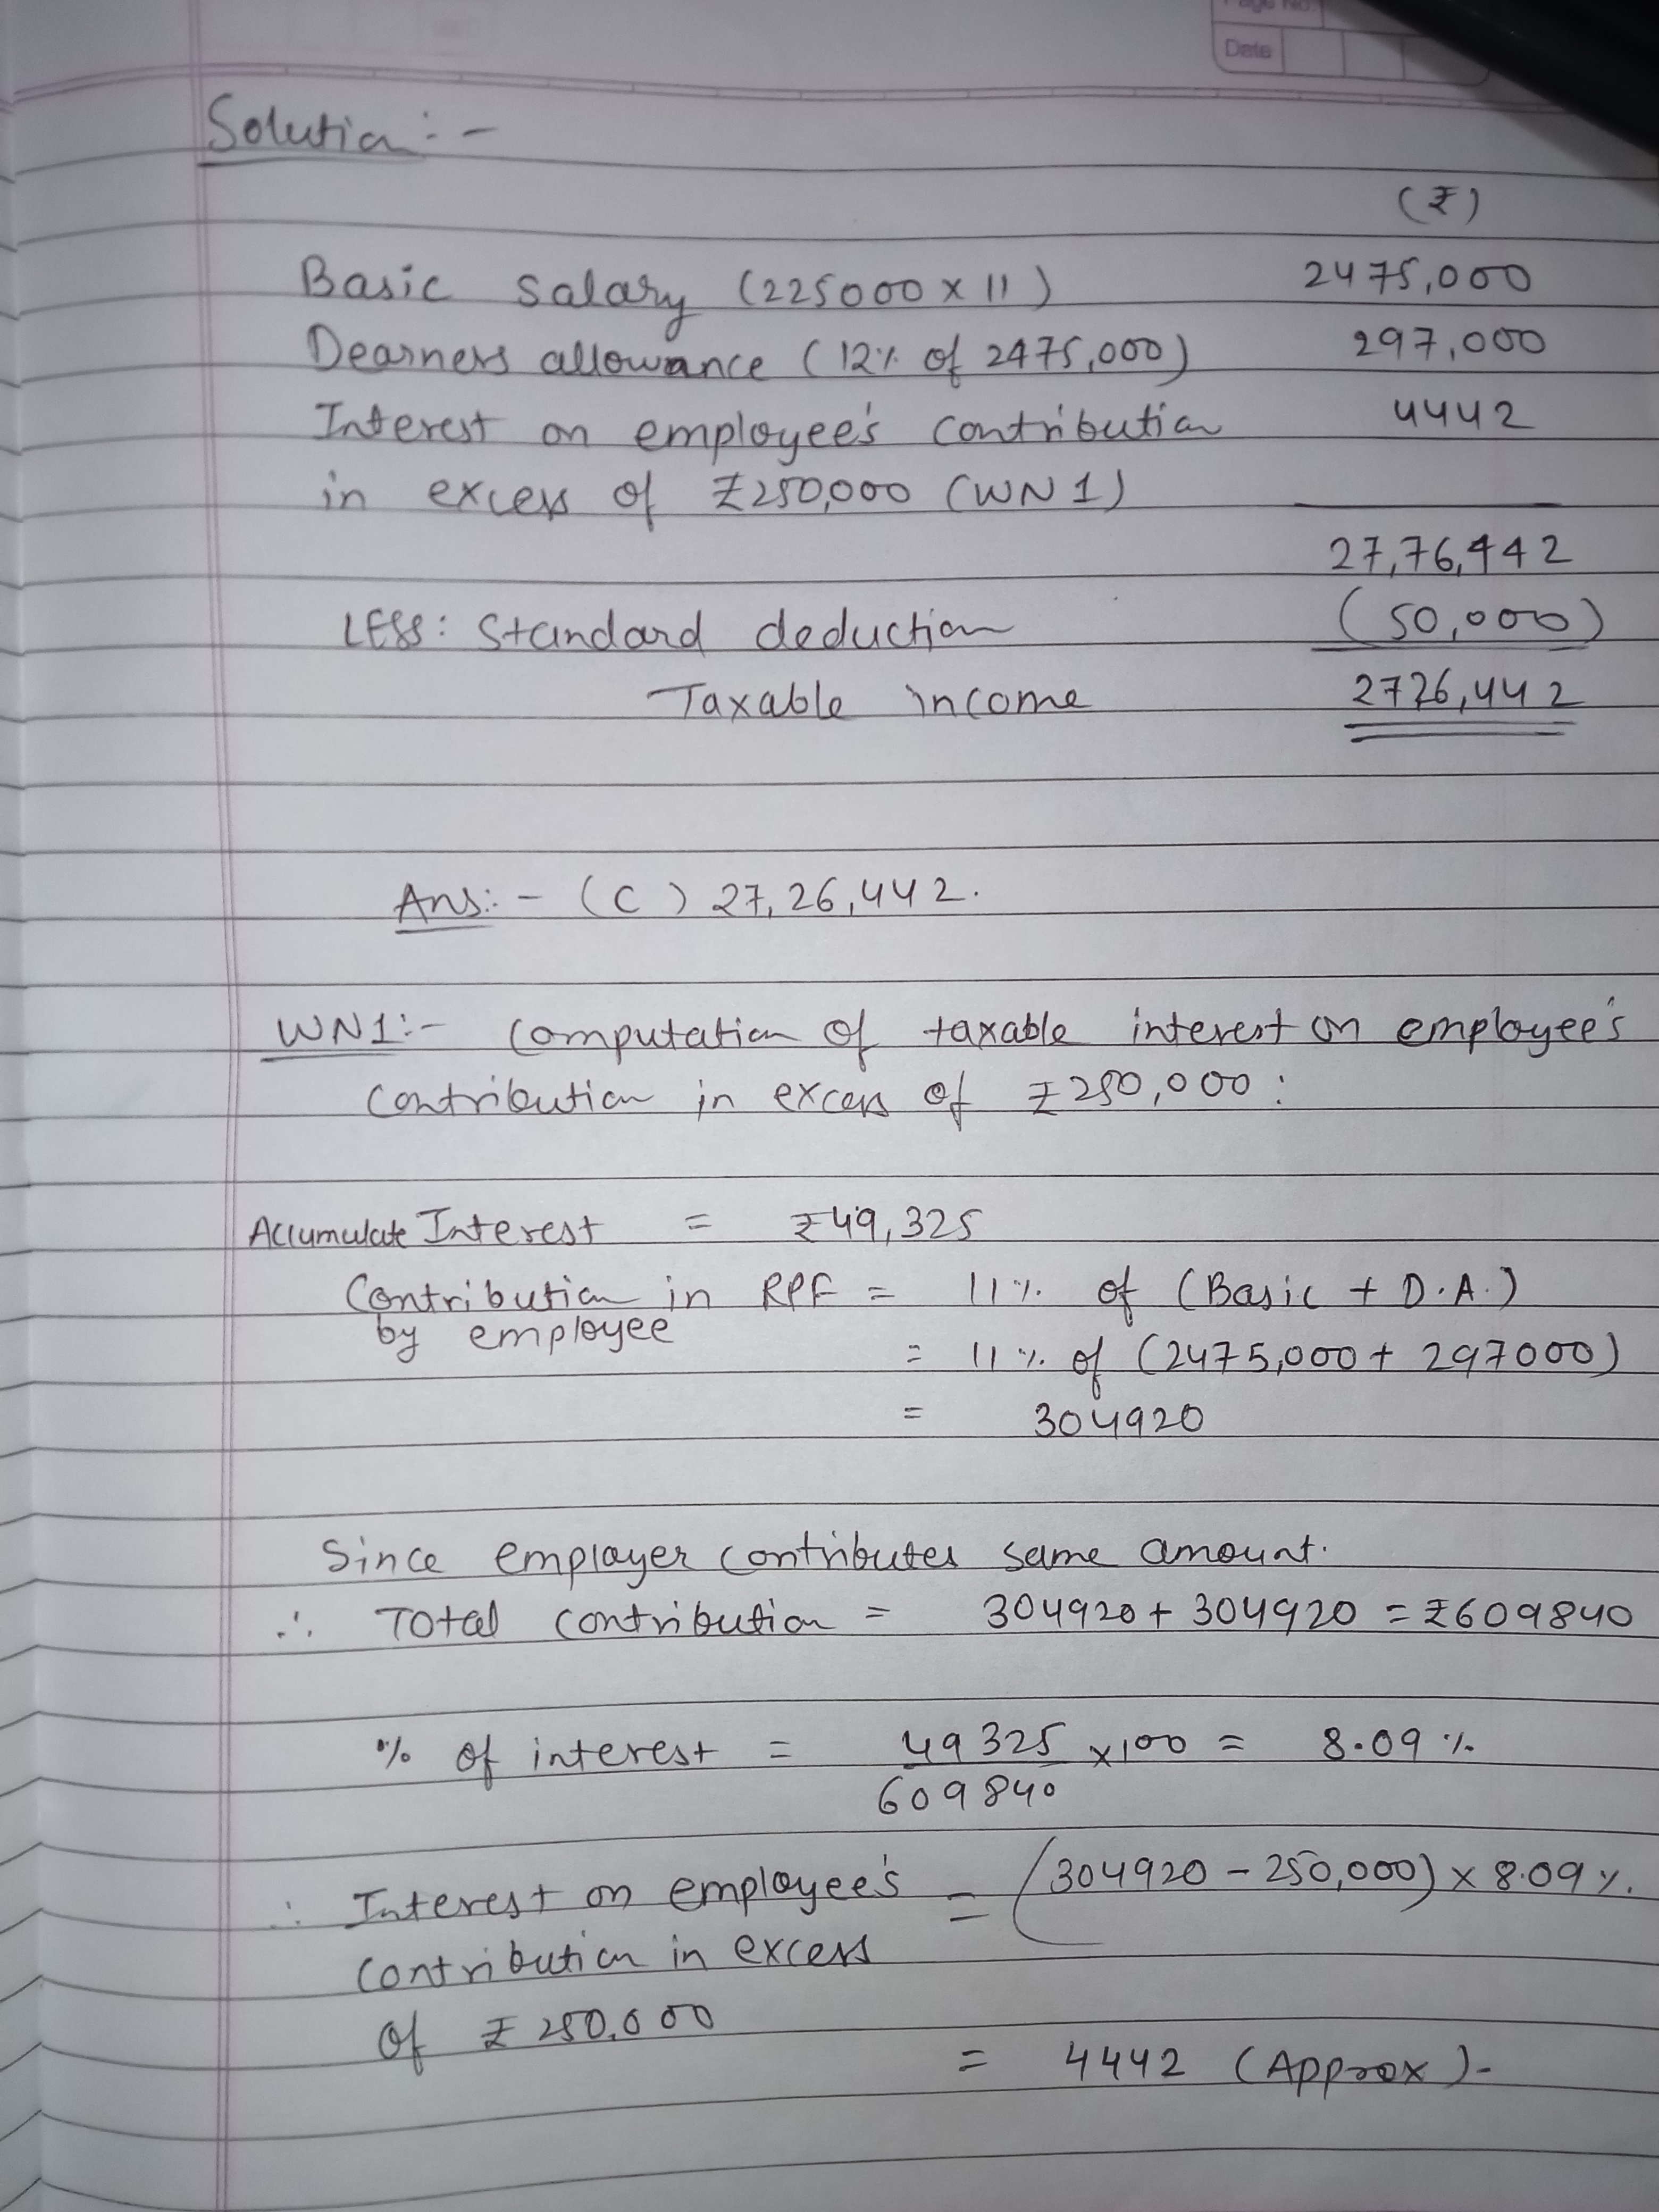 Page No.
Date
Solution :-
(₹)
Basic salary (225000 x 11) 2475,000
Dearness allowance (12% of 2475,000) 297,000
Interest on employee's contribution 4442
in excess of ₹250,000 (WN 1)
27,76,442
LESS: Standard deduction (50,000)
Taxable income 2726,442
Ans:- (C) 27,26,442.
WN1:- Computation of taxable interest on employee's
contribution in excess of ₹250,000 :
Accumulate Interest = ₹49,325
Contribution in RPF = 11% of (Basic + D.A.)
by employee
= 11% of (2475,000 + 297000)
= 304920
Since employer contributes same amount.
∴ Total contribution = 304920 + 304920 = ₹609840
% of interest = 49325 x 100 = 8.09 %
609840
∴ Interest on employee's = (304920 - 250,000) x 8.09 %.
contribution in excess
of ₹ 250,000
= 4442 (Approx).